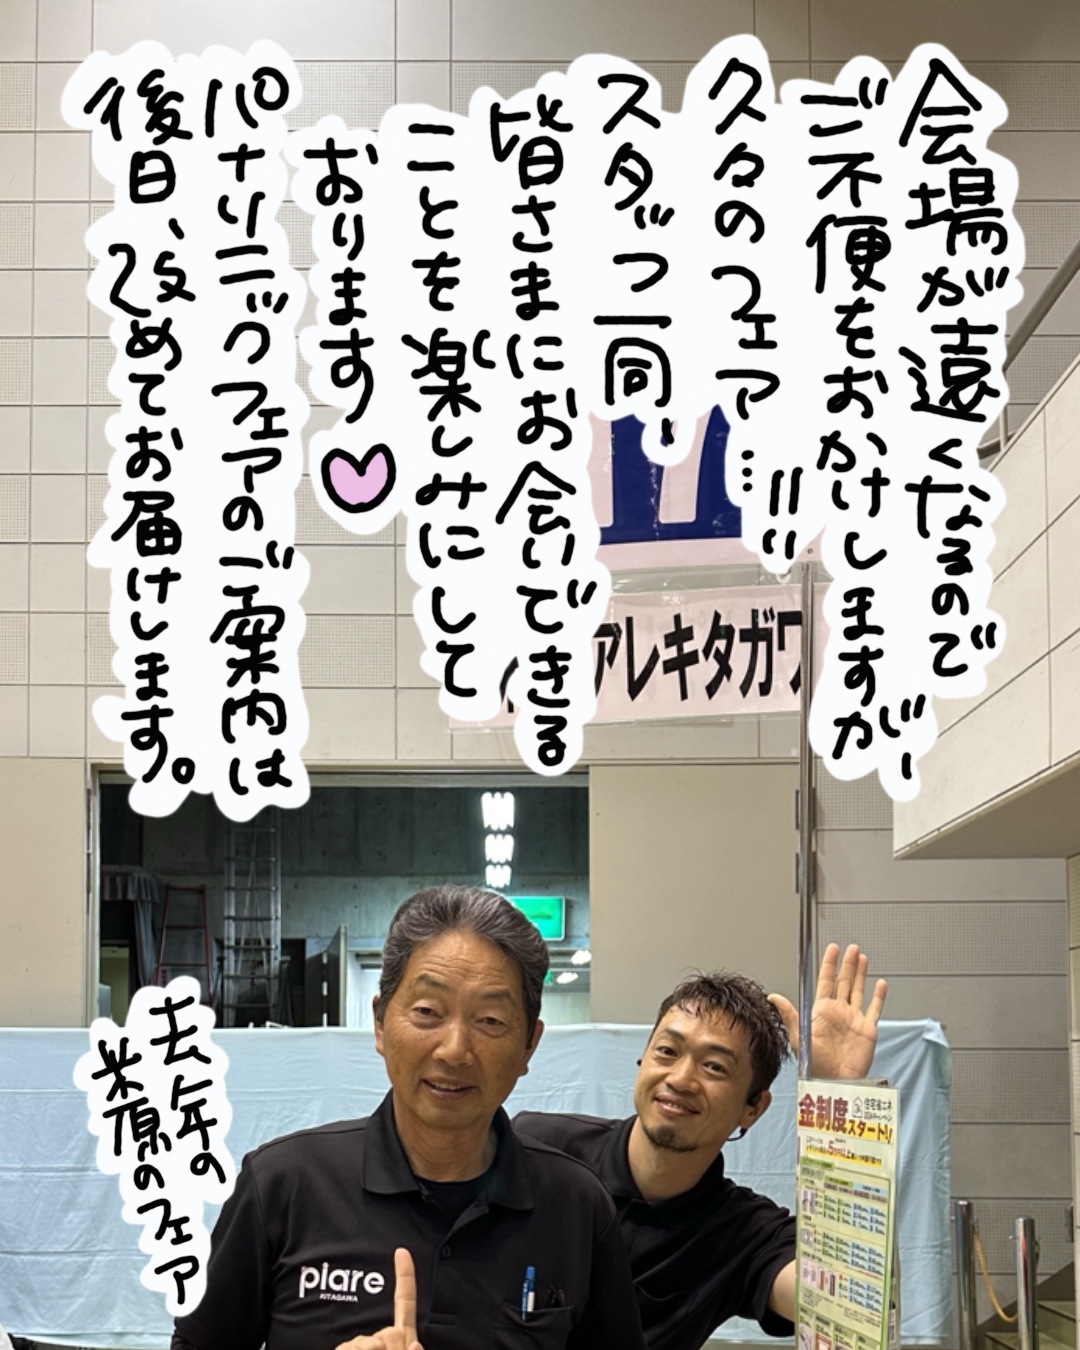 会場が遠くなるので
ご不便をおかけしますが、
久々のフェア…!!
スタッフ一同、
皆さまにお会いできる
ことを楽しみにして
おります
パナソニックフェアのご案内は
後日、改めてお届けします。
17
アレキタガワ
去年の
米原のフェア
piare
KITAGAWA
金制度
スタート!!
住宅省エネ